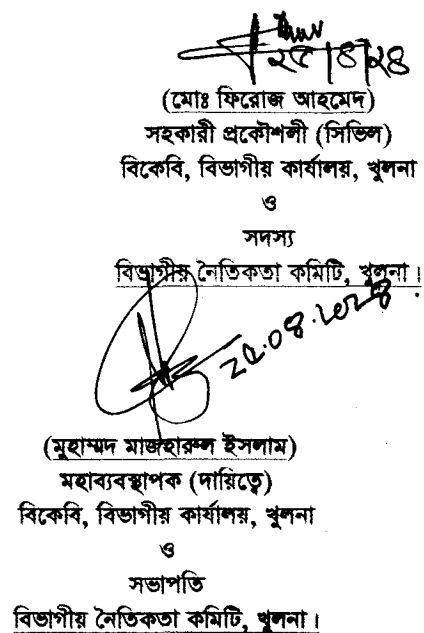 ২৫/৪/২৪
(মোঃ ফিরোজ আহমেদ)
সহকারী প্রকৌশলী (সিভিল)
বিকেবি, বিভাগীয় কার্যালয়, খুলনা
ও
সদস্য
বিভাগীয় নৈতিকতা কমিটি, খুলনা।
২৫.০৪.২০২৪
(মুহাম্মদ মাজহারুল ইসলাম)
মহাব্যবস্থাপক (দায়িত্বে)
বিকেবি, বিভাগীয় কার্যালয়, খুলনা
ও
সভাপতি
বিভাগীয় নৈতিকতা কমিটি, খুলনা।